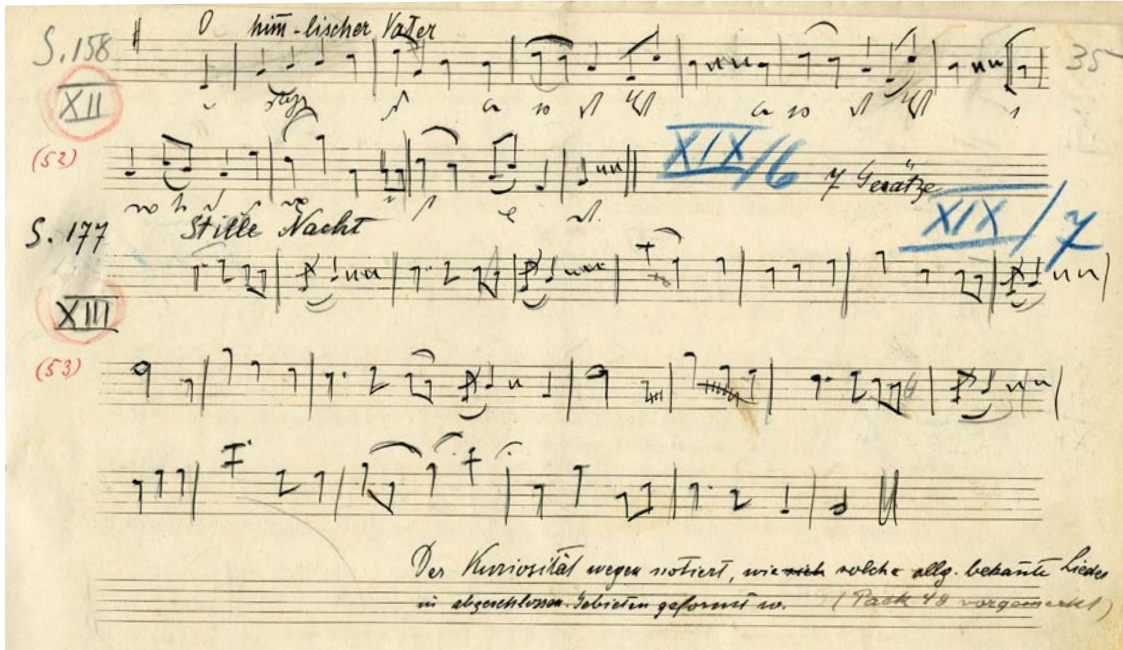 O him̄-lischer Vater
S. 158
35
XII
(52)
XIX/6
7 Gesätze
XIX/7
S. 177 Stille Nacht
XIII
(53)
Der Kuriosität wegen notiert, wie solche allg. bekan̄te Lieder
in abgeschlossen. Gebieten geformt w. (Pack 48 vorgemerkt)